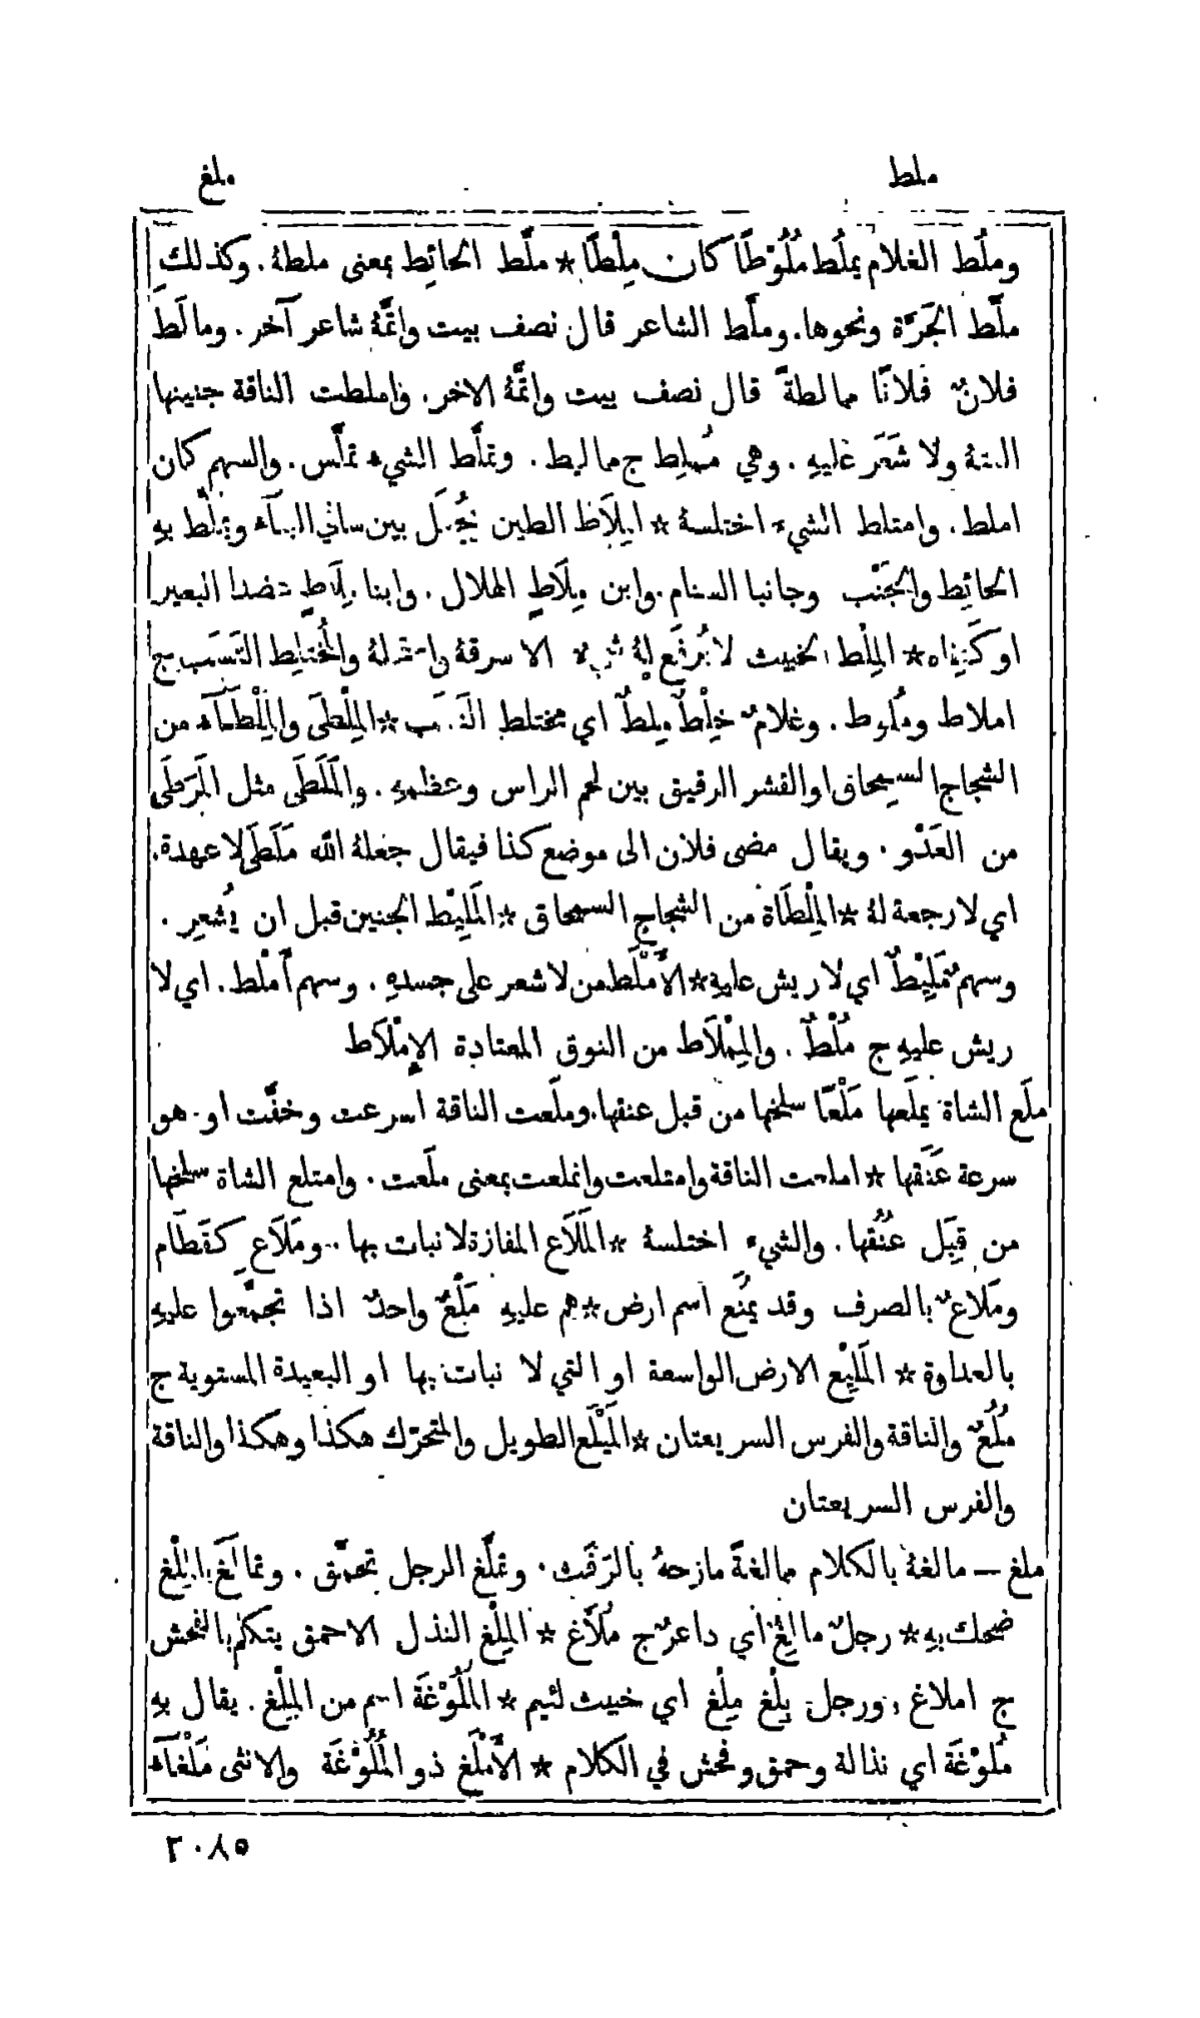 ملط
ملغ
وملُط الغلام يملُط مُلُوْطًا كان مِلْطًا * ملَّط الحائِط بمعنى ملطهُ. وكذلكِ
ملَّط الجَرَّة ونحوها. وملَّط الشاعر قال نصف بيت واتمَّهُ شاعر آخر. ومالَط
فلانٌ فلانًا ممالطةً قال نصف بيت واتمَّهُ الاخر. واملطت الناقة جنينها
القتهُ ولا شَعَر عليهِ. وهي مُملِط ج مماليط. وتملَّط الشيءُ تملَّس. والسهم كان
املط. وامتلط الشيءَ اختلسهُ * المِلَاط الطين يُجعَل بين سافي البنآء ويملَّط بهِ
الحائِط والجَنْب وجانبا السنام. وابن مِلَاطٍ الهلال. وابنا مِلَاطٍ عضدا البعير
او كَتِفاه * المِلْط الخبيث لا يُرفَع لهُ شيء الا سرقهُ واستحلهُ والمُختلِط النَسَب ج
املاط ومُلُوط. وغلامٌ خِلْطٌ مِلطٌ اي مختلط النَسَب * المِلْطَى والمِلْطَآء من
الشجاج السمحاق او القشر الرقيق بين لحم الراس وعظمهِ. والمَلَطَى مثل المَرَطَى
من العَدْو. ويقال مضى فلان الى موضع كذا فيقال جعلهُ الله مَلَطَى لا عهدة.
اي لا رجعة لهُ * المِلْطَاة من الشجاج السمحاق * المَلِيْط الجنين قبل ان يُشعِر.
وسهمٌ مَلِيْطٌ اي لا ريش عليهِ * الأَمْلَط من لا شعر على جسدهِ. وسهم أَمْلط. اي لا
ريش عليهِ ج مُلْطٌ. والمِمْلَاط من النوق المعتادة الإِمْلَاط
ملَع الشاة يملَعها مَلْعًا سلخها من قبل عنقها. وملَعت الناقة اسرعت وخفَّت او هو
سرعة عَنَقها * املعت الناقة وامتلعت وانملعت بمعنى ملَعت. وامتلع الشاة سلخها
من قِبَل عُنُقها. والشيءَ اختلسهُ * المَلَاع المفازة لا نبات بها. ومَلَاعِ كقَطَامِ
ومَلَاعٌ بالصرف وقد يُمنَع اسم ارض * هم عليهِ مَلْعٌ واحدٌ اذا تجمَّعوا عليهِ
بالعداوة * المَلِيْع الارض الواسعة او التي لا نبات بها او البعيدة المستوية ج
مُلُعٌ والناقة والفرس السريعتان * المَيْلَع الطويل والمتحرّك هكذا وهكذا والناقة
والفرس السريعتان
ملغ — مالغهُ بالكلام ممالغةً مازحهُ بالرَفَث. وتملَّغ الرجل تحمَّق. وتمالَغ بالمِلْغ
ضحك بهِ * رجلٌ مالِغٌ اي داعرٌ ج مُلَّاغ * المِلْغ النذل الاحمق يتكلَّم بالفحش
ج املاغ. ورجل بِلْغ مِلْغ اي خبيث لئيم * المُلُوْغَة اسم من المِلْغ. يقال بهِ
مُلُوْغَة اي نذالة وحمق وفحش في الكلام * الأَمْلَغ ذو المُلُوْغَة والانثى مَلْغَآء
٢٠٨٥